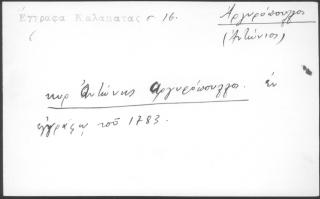 Έγγραφα Καλαματας σ 16.
Ἀργυρόπουλος
(Ἀντώνιος)
κυρ Ἀντώνης Ἀργυρόπουλος. ἐν
ἐγγράφῳ τοῦ 1783.